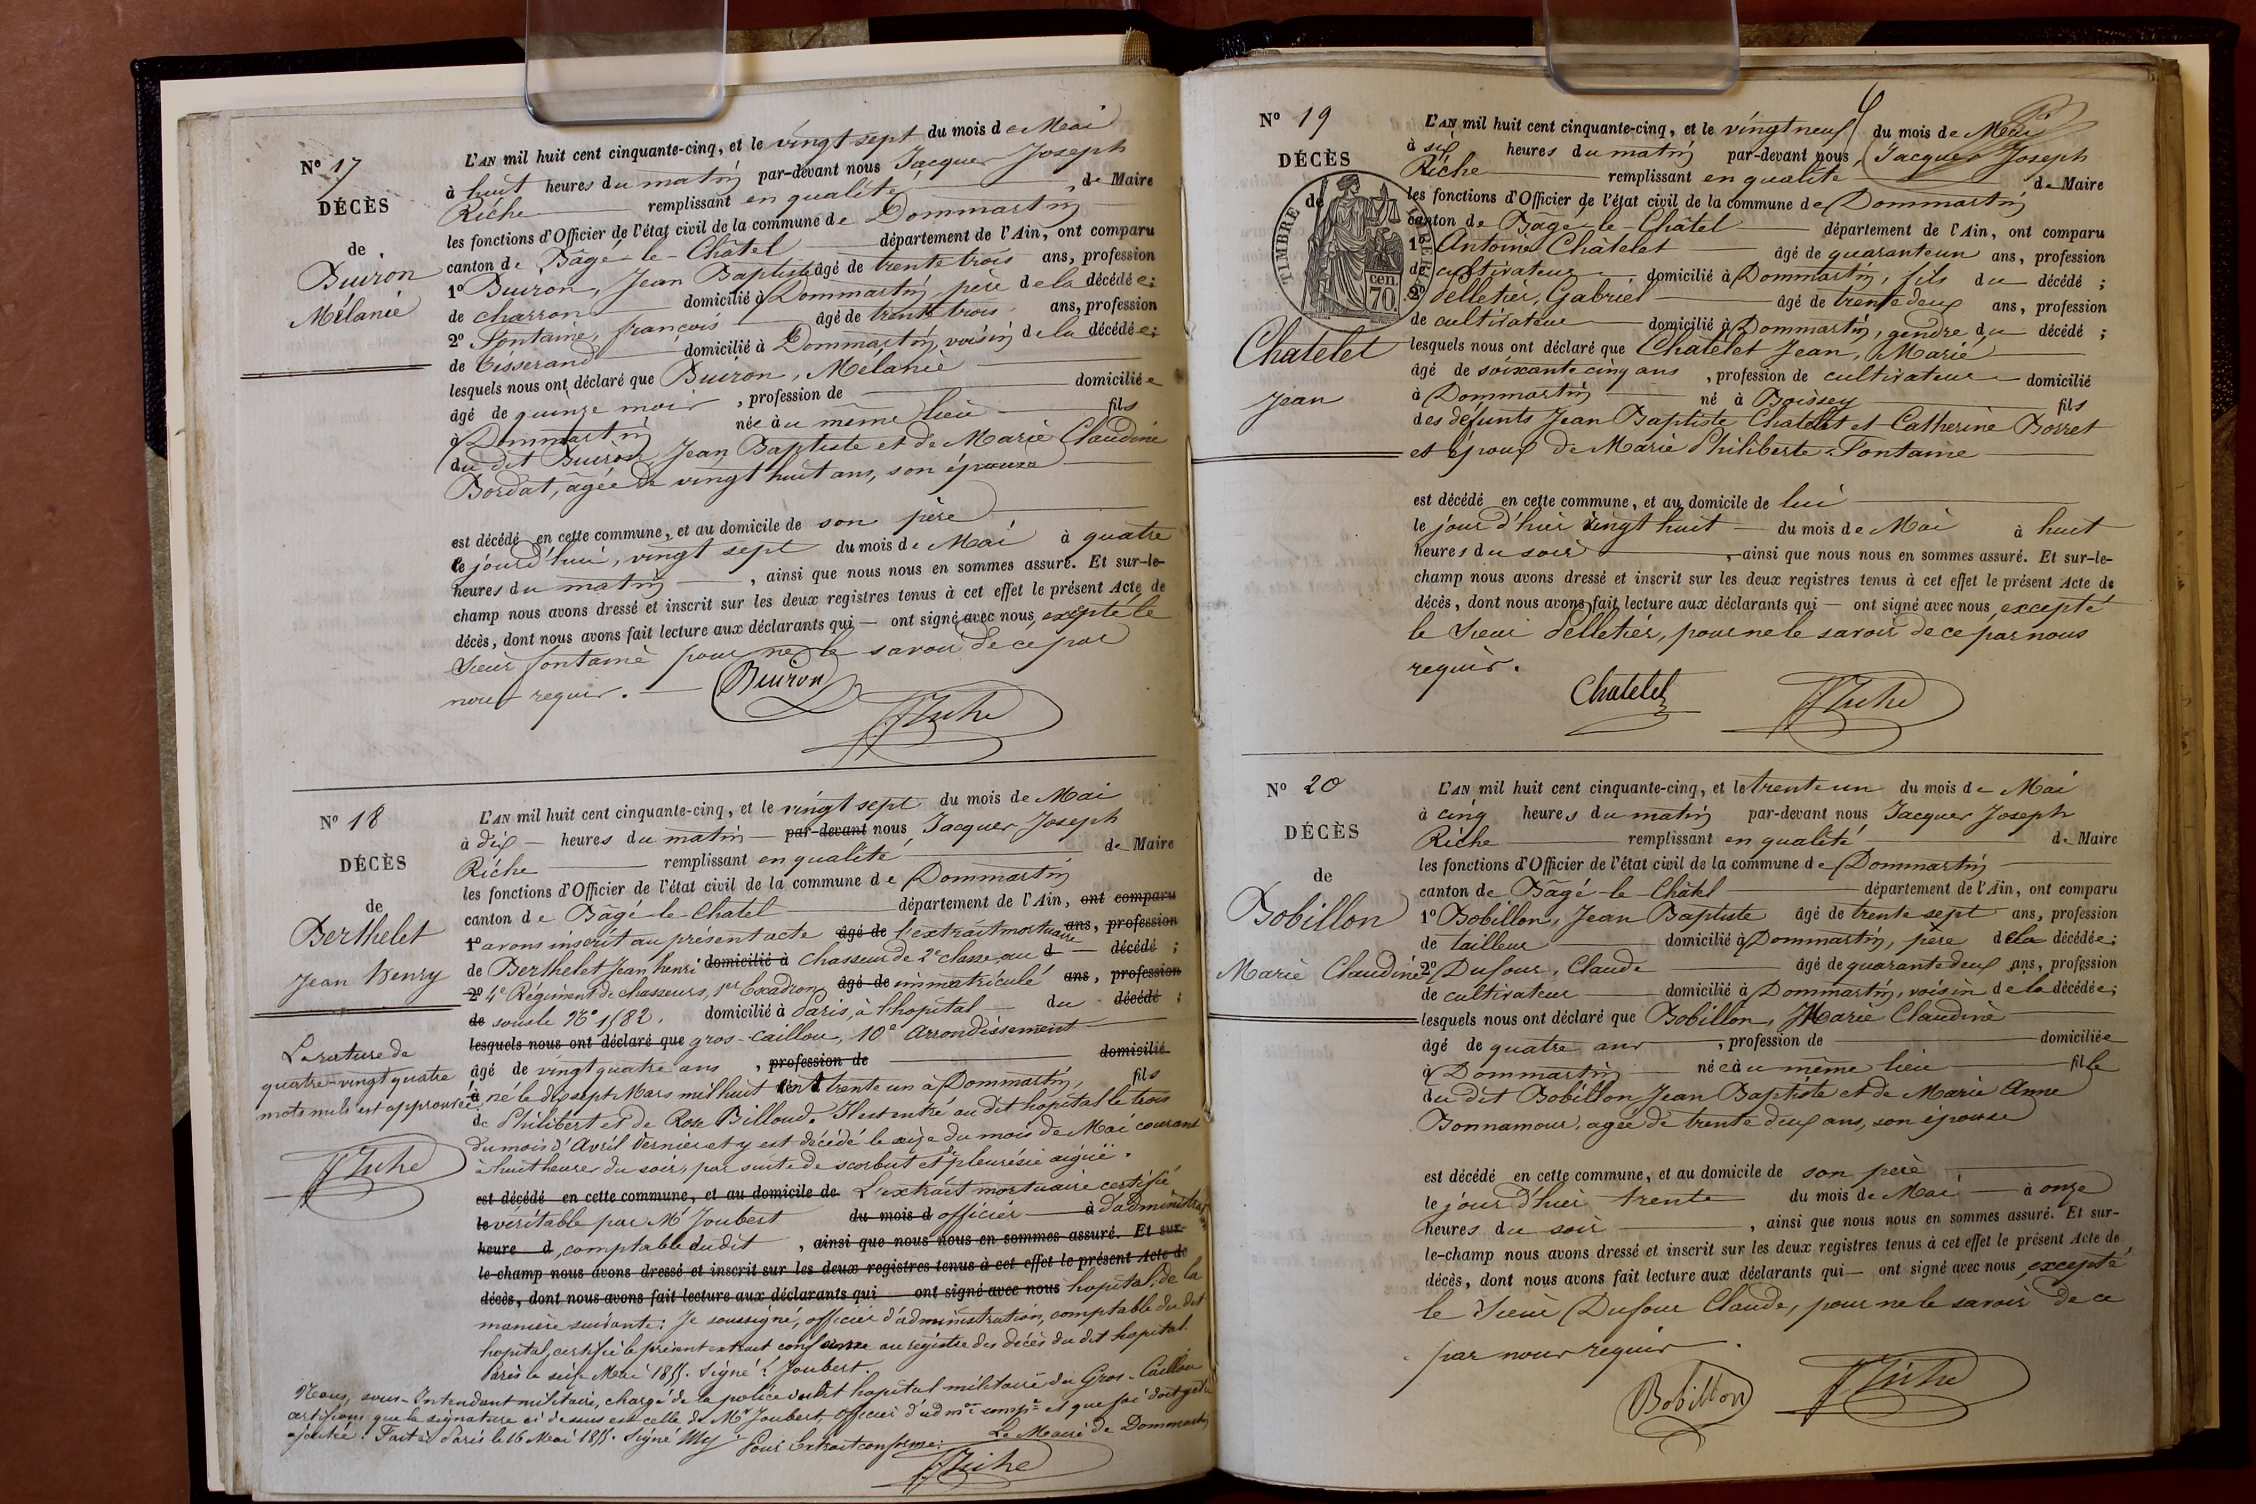 N° 17
DÉCÈS
de
Buiron
Mélanie
L'AN mil huit cent cinquante-cinq, et le vingt sept du mois de Mai
à huit heures du matin par-devant nous Jacques Joseph
Riche remplissant en qualité de Maire
les fonctions d'Officier de l'état civil de la commune de Dommartin
canton de Bâgé-le-Châtel département de l'Ain, ont comparu
1° Buiron, Jean Baptiste âgé de trente trois ans, profession
de charron domicilié à Dommartin, père de la décédée;
2° Fontaine, françois âgé de trente trois ans, profession
de tisserand domicilié à Dommartin, voisin de la décédée;
lesquels nous ont déclaré que Buiron, Mélanie
âgé de quinze mois, profession de domiciliée
à Dommartin née à u même lieu fils
du dit Buiron, Jean Baptiste et de Marie Claudine
Bordat, agée de vingt huit ans, son épouse
est décédé en cette commune, et au domicile de son père
le jourd'hui, vingt sept du mois de Mai à quatre
heures du matin, ainsi que nous nous en sommes assuré. Et sur-le-
champ nous avons dressé et inscrit sur les deux registres tenus à cet effet le présent Acte de
décès, dont nous avons fait lecture aux déclarants qui — ont signé avec nous, exepté le
Sieur fontaine pour ne le savoir de ce par
nous requis.
Buiron
JJRiche
N° 18
DÉCÈS
de
Berthelet
Jean Henry
La rature de
quatre-vingt quatre
mots nuls est approuvée.
JJRiche
L'AN mil huit cent cinquante-cinq, et le vingt sept du mois de Mai
à dix — heures du matin — par-devant nous Jacques Joseph
Riche remplissant en qualité de Maire
les fonctions d'Officier de l'état civil de la commune de Dommartin
canton de Bâgé-le-Chatel département de l'Ain, ont comparu
1° avons inscrit au présent acte âgé de l'extrait mortuaire ans, profession
de Berthelet Jean henri domicilié à Chasseur de 2e classe au d décédé;
2° 4e Régiment de chasseurs, 1er Escadron, âgé de immatriculé ans, profession
de sous le N° 1582. domicilié à Paris, à l'hopital du décédé;
lesquels nous ont déclaré que gros-caillou, 10e Arrondissement
âgé de vingt quatre ans, profession de domicilié
à né le dix sept Mars mil huit cent trente un à Dommartin, fils
de Philibert et de Rose Billoud. Il est entré au dit hopital le trois
du mois d'Avril dernier et y est décédé le seize du mois de Mai courant
à huit heures du soir, par suite de scorbut et pleurésie aiguë.
est décédé en cette commune, et au domicile de L'extrait mortuaire certifié
le véritable par Mr Joubert du mois d officier à d'administrat
heure d, comptable du dit, ainsi que nous nous en sommes assuré. Et sur-
le-champ nous avons dressé et inscrit sur les deux registres tenus à cet effet le présent Acte de
décès, dont nous avons fait lecture aux déclarants qui ont signé avec nous hopital, de la
manière suivante: Je soussigné, officier d'administration, comptable du dit
hopital, certifie le présent extrait conforme au régistre des décès du dit hopital.
Paris le seize Mai 1855. Signé: Joubert.
Nous, sous-Intendant militaire, chargé de la police du dit hopital militaire du Gros-Caillou
certifions que la signature ci dessus est celle de Mr Joubert, Officier d'admon compe et que foi doit y être
ajoutée. Fait à Paris le 16 Mai 1855. Signé
Pour Extrait conforme: Le Maire de Dommartin
JJRiche
N° 19
DÉCÈS
de
TIMBRE
cen. 70.
Chatelet
Jean
L'AN mil huit cent cinquante-cinq, et le vingt neuf du mois de Mai
à six heures du matin par-devant nous, Jacques Joseph
Riche remplissant en qualité de Maire
les fonctions d'Officier de l'état civil de la commune de Dommartin
canton de Bâgé-le-Châtel département de l'Ain, ont comparu
1° Antoine Châtelet âgé de quarante un ans, profession
de cultivateur domicilié à Dommartin, fils du décédé;
2° Pelletier, Gabriel âgé de trente deux ans, profession
de cultivateur domicilié à Dommartin, gendre du décédé;
lesquels nous ont déclaré que Chatelet Jean, Marie
âgé de soixante cinq ans, profession de cultivateur domicilié
à Dommartin né à Boissey fils
des défunts Jean Baptiste Chatelet et Catherine Borret
et époux de Marie Philiberte Fontaine
est décédé en cette commune, et au domicile de lui
le jour d'hier vingt huit du mois de Mai à huit
heures du soir, ainsi que nous nous en sommes assuré. Et sur-le-
champ nous avons dressé et inscrit sur les deux registres tenus à cet effet le présent Acte de
décès, dont nous avons fait lecture aux déclarants qui — ont signé avec nous, excepté
le Sieur Pelletier, pour ne le savoir de ce par nous
requis.
Chatelet
JJRiche
N° 20
DÉCÈS
de
Bobillon
Marie Claudine
L'AN mil huit cent cinquante-cinq, et le trente un du mois de Mai
à cinq heures du matin par-devant nous Jacques Joseph
Riche remplissant en qualité de Maire
les fonctions d'Officier de l'état civil de la commune de Dommartin
canton de Bâgé-le-Châtel département de l'Ain, ont comparu
1° Bobillon, Jean Baptiste âgé de trente sept ans, profession
de tailleur domicilié à Dommartin, père de la décédée;
2° Dufour, Claude âgé de quarante deux ans, profession
de cultivateur domicilié à Dommartin, voisin de la décédée;
lesquels nous ont déclaré que Bobillon, Marie Claudine
âgé de quatre ans, profession de domiciliée
à Dommartin née à u même lieu fille
du dit Bobillon Jean Baptiste et de Marie Anne
Bonnamour, agée de trente deux ans, son épouse
est décédé en cette commune, et au domicile de son père
le jour d'hier trente du mois de Mai à onze
heures du soir, ainsi que nous nous en sommes assuré. Et sur-
le-champ nous avons dressé et inscrit sur les deux registres tenus à cet effet le présent Acte de
décès, dont nous avons fait lecture aux déclarants qui — ont signé avec nous, excepté
le Sieur Dufour Claude, pour ne le savoir de ce
par nous requis.
Bobillon
JJRiche